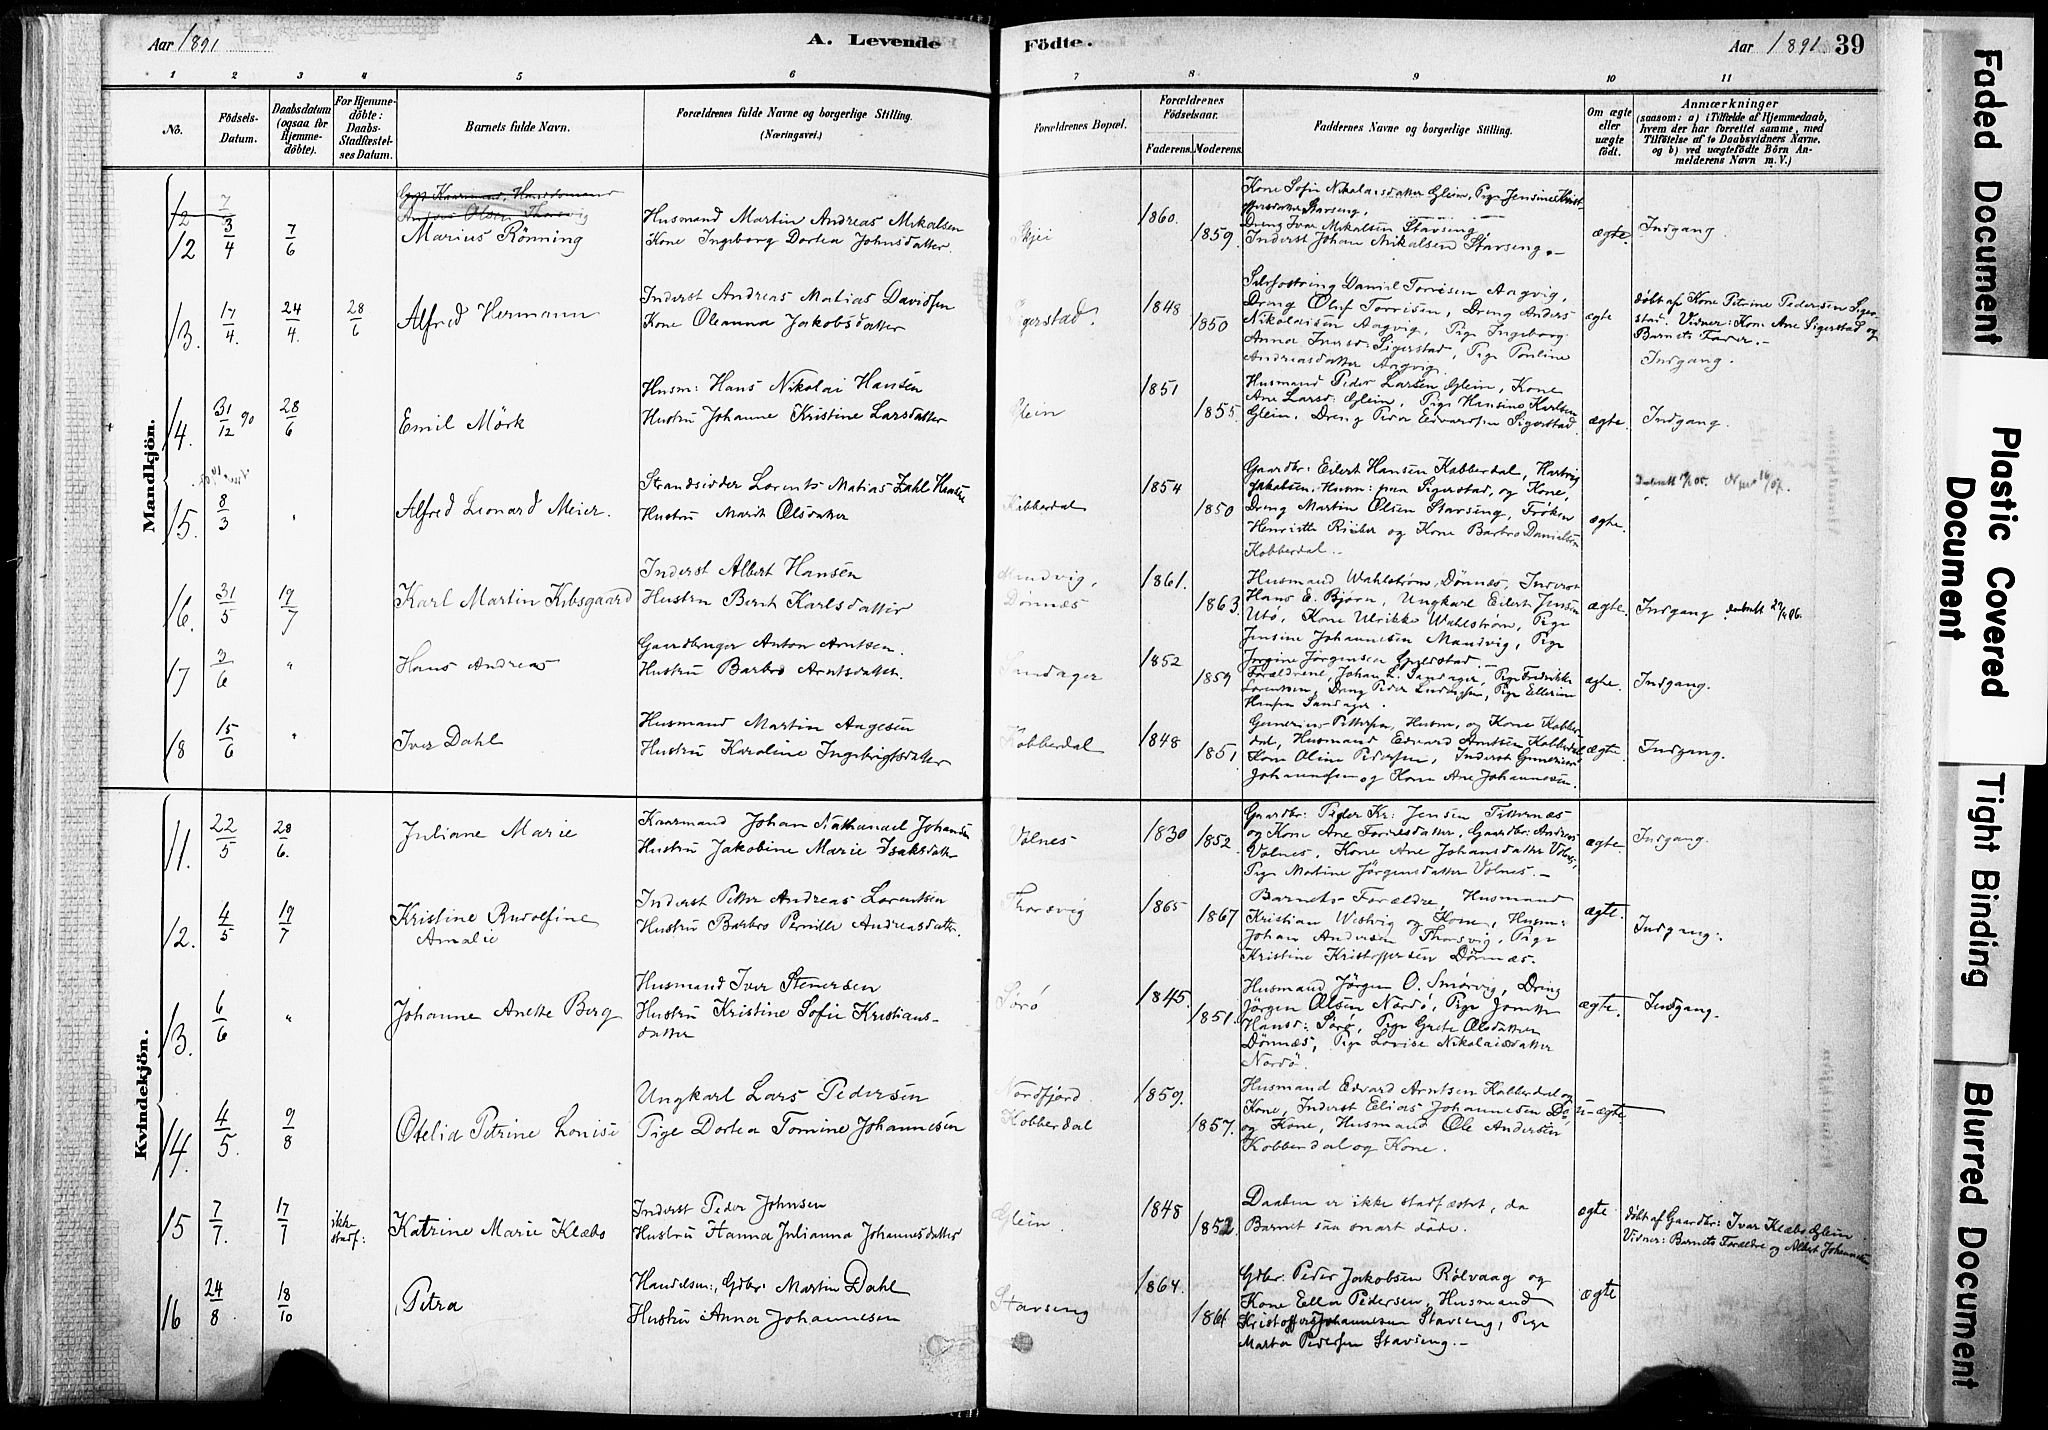 Aar 1891
A. Levende
Födte.
Aar 1891
39
1 2 3 4 5 6 7 8 9 10 11
No.
Födsels-
Datum.
Daabsdatum
(ogsaa for
Hjemme-
döbte).
For Hjemme-
döbte:
Daabs-
Stadfæstel-
ses Datum.
Barnets fulde Navn.
Forældrenes fulde Navne og borgerlige Stilling.
(Næringsvei.)
Forældrenes Bopæl.
Forældrenes
Födselsaar.
Faderens. Moderens.
Faddernes Navne og borgerlige Stilling.
Om ægte
eller
uægte
født.
Anmærkninger
(saasom: a) i Tilfælde af Hjemmedaab,
hvem der har forrettet samme, med
Tilföielse af to Daabsvidners Navne.
og b) ved uægtefödte Börn An-
melderens Navn m. V.)
Mandkjön.
12 3/4 7/6 Marius Rönning
Husmand Martin Andreas Mikalsen
Kone Ingeborg Dortea Johnsdatter
Skjei
1860. 1859.
Kone Sofie Nikolaisdatter Glein, Pige Jensine Krist-
offersdatter Stavseng,
Dreng Ivar Mikalsen Stavseng,
Inderst Johan Mikalsen Stavseng.
ægte. Indgang
13. 17/4. 24/4. 28/6 Alfred Hermann
Inderst Andreas Matias Davidsen
Kone Oleanna Jakobsdatter
Sigerstad.
1848 1850
Daniel Torrisen Aagvig,
Dreng Oluf Torrisen, Dreng Anders
Nikolaisen Aagvig, Pige Ingeborg
Anna Iversd: Sigerstad, Pige Pauline
Andreasdatter Aagvig.
ægte
döbt af Kone Petrine Pedersen Siger-
stad. Vidner: Kone Ane Sigerstad og
Barnets Fader.-
Indgang.
14. 31/12 90 28/6 Emil Mörk
Husm: Hans Nikolai Hansen
Hustru Johanne Kristine Larsdatter
Glein
1851 1855
Husmand Peder Larsen Glein, Kone
Ane Larsd: Glein, Pige Hansine Karlsen
Glein, Dreng Peder Edvardsen Sigerstad.
ægte. Indgang.
15. 8/3 " Alfred Leonard Meier.
Strandsidder Lorents Matias Zahl Hansen
Hustru Marit Olsdatter
Kobberdal
1854 1850
Gaardbr: Eilert Hansen Kobberdal, Hartvig
Jakobsen, Husm: paa Sigerstad, og Kone,
Dreng Martin Olsen Stavseng, Fröken
Henriette Rieber og Kone Barbro Danielsen
Kobberdal.-
ægte.
16. 31/5 19/7 Karl Martin Kibsgaard
Inderst Albert Hansen
Hustru Berit Karlsdatter
Mandvig,
Dönnæs
1861. 1863.
Husmand Wahlström, Dönnæs, Inderst
Hans E. Bjørn, Ungkarl Eilert Jensen
Utö, Kone Ulrikke Wahlström, Pige
Jensine Johannesen Mandvig, Pige
Jorgine Jörgensen
ægte. Indgang
17 2/6 " Hans Andreas
Gaardbruger Anton Arntsen.
Hustru Barbro Arntsdatter.
Sandager
1852 1859
Forældrene, Johan L. Sandager, Pige Fredrikke
Lorentsen, Dreng Peder Ludvigsen, Pige Ellerine
Hansen Sandager.
ægte. Indgang.
18 15/6 " Iver Dahl
Husmand Martin Aagesen
Hustru Karoline Ingebrigtsdatter
Kobberdal
1848 1851
Gunerius Pettersen, Husm, og Kone Kobber-
dal, Husmand Edvard Arntsen Kobberdal
Kone Oline Pedersen, Inderst Gunerius
Johannesen og Kone Ane Johannesen.
ægte. Indgang.
Kvindekjön.
11. 22/5 28/6. Juliane Marie
Kaarmand Johan Nathanael Johansen
Hustru Jakobine Marie Isaksdatter
Volnes
1830 1852.
Gaardbr: Peder Kr. Jensen Titternæs
og Kone Ane Torresdatter, Gaardbr: Andreas
Volnes, Kone Ane Johansdatter Volnes,
Pige Martine Jörgensdatter Volnes.-
ægte. Indgang.
12. 4/5 19/7 Kristine Rudolfine
Amalie
Inderst Petter Andreas Lorentsen
Hustru Barbro Pernille Andreasdatter.
Thorsvig
1865 1867
Barnets Forældre, Husmand
Kristian Westvig og Kone, Husm:
Johan Andersen Thorsvig, Pige
Kristine Kristoffersen Dönnæs.
ægte. Indgang.
13. 6/6 " Johanne Anette Berg
Husmand Iver Stenersen
Hustru Kristine Sofie Kristians-
datter
Sörö
1845. 1851.
Husmand Jörgen O. Smörvig, Dreng
Jörgen Olsen Nordö, Pige Jonette
Hansd: Sörö, Pige Grete Olsdatter
Dönnæs, Pige Lovise Nikolaisdatter
Nordö.
ægte. Indgang.
14. 4/5. 9/8 Otelia Petrine Lovise
Ungkarl Lars Pedersen
Pige Dortea Tomine Johannesen
Nordfjord
Kobberdal
1859. 1857.
Husmand Edvard Arntsen Kobberdal og
Kone, Inderst Elias Johannesen Do,
og Kone, Husmand Ole Andersen
Kobberdal og Kone.
u-ægte
15 7/7. 17/7 ikke
stadf: Katrine Marie Klæbo
Inderst Peder Johnsen
Hustru Hanna Julianna Johannesdatter
Glein.
1848 1852
Daaben er ikke stadfæstet, da
Barnet saa snart döde.
ægte
döbt af Gaardbr: Ivar Klæbo Glein.
Vidner: Barnets Forældre og Albert Johannesen
16 24/8 18/10 Petra
Handelsm:, Gdbr: Martin Dahl
Hustru Anna Johannesen
Stavseng
1864. 1861
Gdbr: Peder Jakobsen Rölvaag og
Kone Ella Pedersen, Husmand
Kristoffer Johannesen Stavseng, Pige
Marta Pedersen Stavseng.-
ægte
Faded Document
Plastic Covered
Document
Tight Binding
Blurred Document